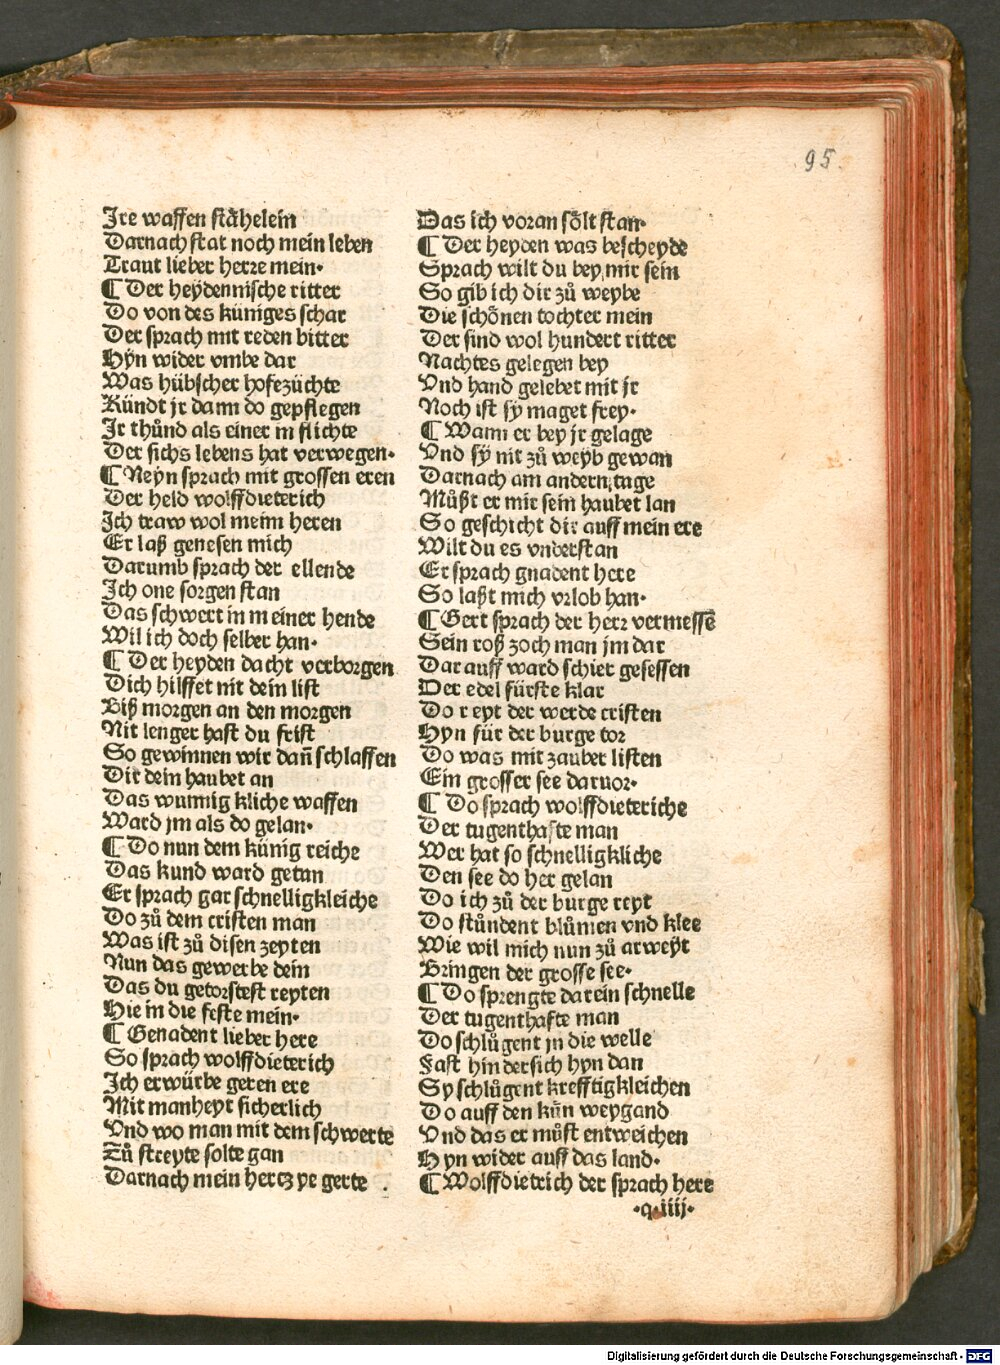 95.
Ire waffen stähelein
Darnach stat noch mein leben
Traut lieber herre mein·
¶ Der heydennische ritter
Do von des küniges schar
Der sprach mit reden bitter
Hyn wider vmbe dar
Was hübscher hofezüchte
Kündt jr dann do gepflegen
Ir thůnd als einer in flichte
Der sichs lebens hat verwegen·
¶ Neyn sprach mit grossen eren
Der held wolffdieterich
Ich traw wol meim heren
Er laß genesen mich
Darumb sprach der ellende
Ich one sorgen stan
Das schwert in meiner hende
Wil ich doch selber han·
¶ Der heyden dacht verborgen
Dich hilffet nit dein list
Biß morgen an den morgen
Nit lenger hast du frist
So gewinnen wir dañ schlaffen
Dir dein haubet an
Das wunnig kliche waffen
Ward jm als do gelan·
¶ Do nun dem künig reiche
Das kund ward getan
Er sprach gar schnelligkleiche
Do zů dem cristen man
Was ist zů disen zeyten
Nun das gewerbe dein
Das du getorstest reyten
Hie in die feste mein·
¶ Genadent lieber here
So sprach wolffdieterich
Ich erwürbe geren ere
Mit manheyt sicherlich
Vnd wo man mit dem schwerte
Zů streyte solte gan
Darnach mein hertz ye gerte .
Das ich voran sölt stan·
¶ Der heyden was bescheyde
Sprach wilt du bey mir sein
So gib ich dir zů weybe
Die schönen tochter mein
Der sind wol hundert ritter
Nachtes gelegen bey
Vnd hand gelebet mit jr
Noch ist sy maget frey·
¶ Wann er bey jr gelage
Vnd sy nit zů weyb gewan
Darnach am andern tage
Můßt er mir sein haubet lan
So geschicht dir auff mein ere
Wilt du es vnderstan
Er sprach gnadent here
So laßt mich vrlob han·
¶ Gert sprach der herr vermessē
Sein roß zoch man jm dar
Dar auff ward schier gesessen
Der edel fürste klar
Do reyt der werde cristen
Hyn für der burge tor
Do was mit zauber listen
Ein grosser see daruor·
¶ Do sprach wolffdieteriche
Der tugenthafte man
Wer hat so schnelligkliche
Den see do her gelan
Do ich zů der burge reyt
Do stůndent blůmen vnd klee
Wie wil mich nun zů arweyt
Bringen der grosse see·
¶ Do sprengte darein schnelle
Der tugenthafte man
Do schlůgent jn die welle
Fast hindersich hyn dan
Sy schlůgent krefftigkleichen
Do auff den kůn weygand
Vnd das er můst entweichen
Hyn wider auff das land·
¶ Wolffdietrich der sprach here
·q·iiij·
Digitalisierung gefördert durch die Deutsche Forschungsgemeinschaft - DFG